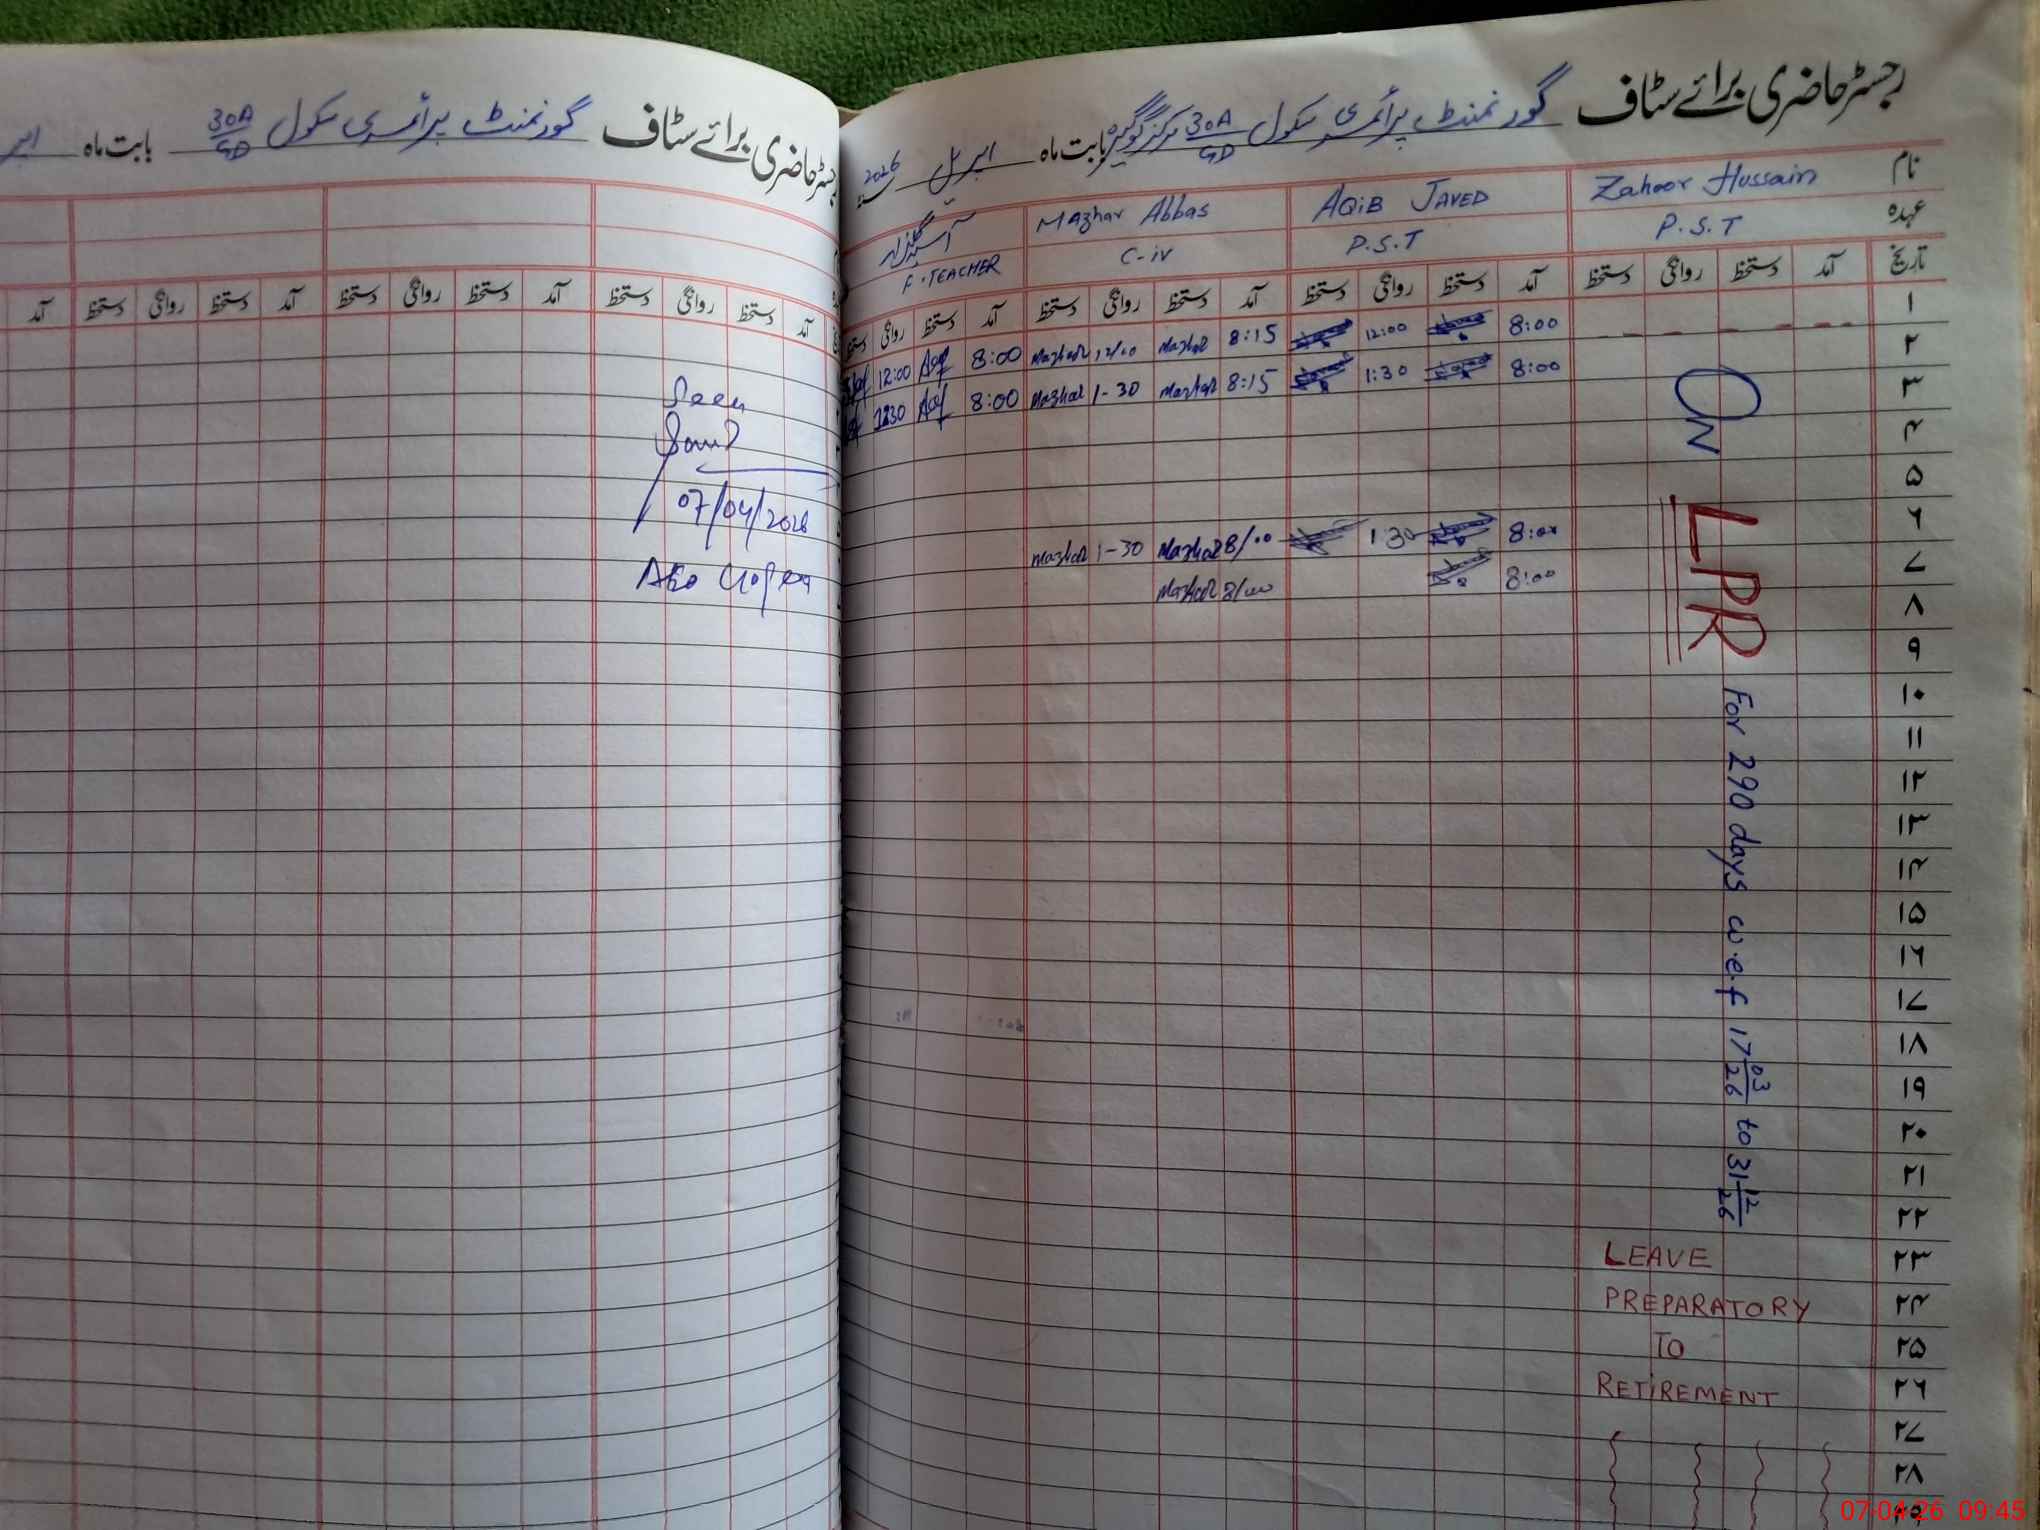 رجسٹر حاضری برائے سٹاف گورنمنٹ پرائمری سکول 30A/GD مرکز گوگیرہ بابت ماہ اپریل 2026
نام Zahoor Hussain AQiB JAVED Mazhar Abbas
عہدہ P.S.T P.S.T C-iv F.TEACHER
تاریخ آمد دستخط روانگی دستخط آمد دستخط روانگی دستخط آمد دستخط روانگی دستخط آمد دستخط روانگی دستخط
۱
۲ 8:00 12:00 8:15 Mazhar 12/00 Mazhar 8:00 12:00
۳ 8:00 1:30 8:15 Mazhar 1-30 Mazhar 8:00
۴
۵
۶ 8:00 1:30 8/00 Mazhar 1-30 Mazhar
۷ 8:00 8/00 Mazhar
۸
۹
۱۰
۱۱
۱۲
۱۳
۱۴
۱۵
۱۶
۱۷
۱۸
۱۹
۲۰
۲۱
۲۲
۲۳
۲۴
۲۵
۲۶
۲۷
۲۸
ON LPR For 290 days w.e.f 17/03/26 to 31/12/26
LEAVE
PREPARATORY
TO
RETIREMENT
رجسٹر حاضری برائے سٹاف گورنمنٹ پرائمری سکول 30A/GD بابت ماہ
آمد دستخط روانگی دستخط آمد دستخط روانگی دستخط آمد دستخط روانگی دستخط آمد
Seen
07/04/2026
07-04-26 09:45